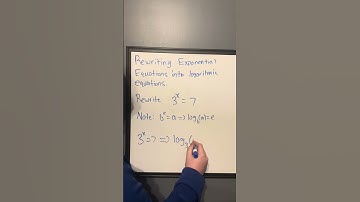 Rewriting Exponential
Equations into logarithmic
equations.
Rewrite 3ˣ = 7
Note: bᵉ = a => log_b(a) = e
3ˣ = 7 => log₃(